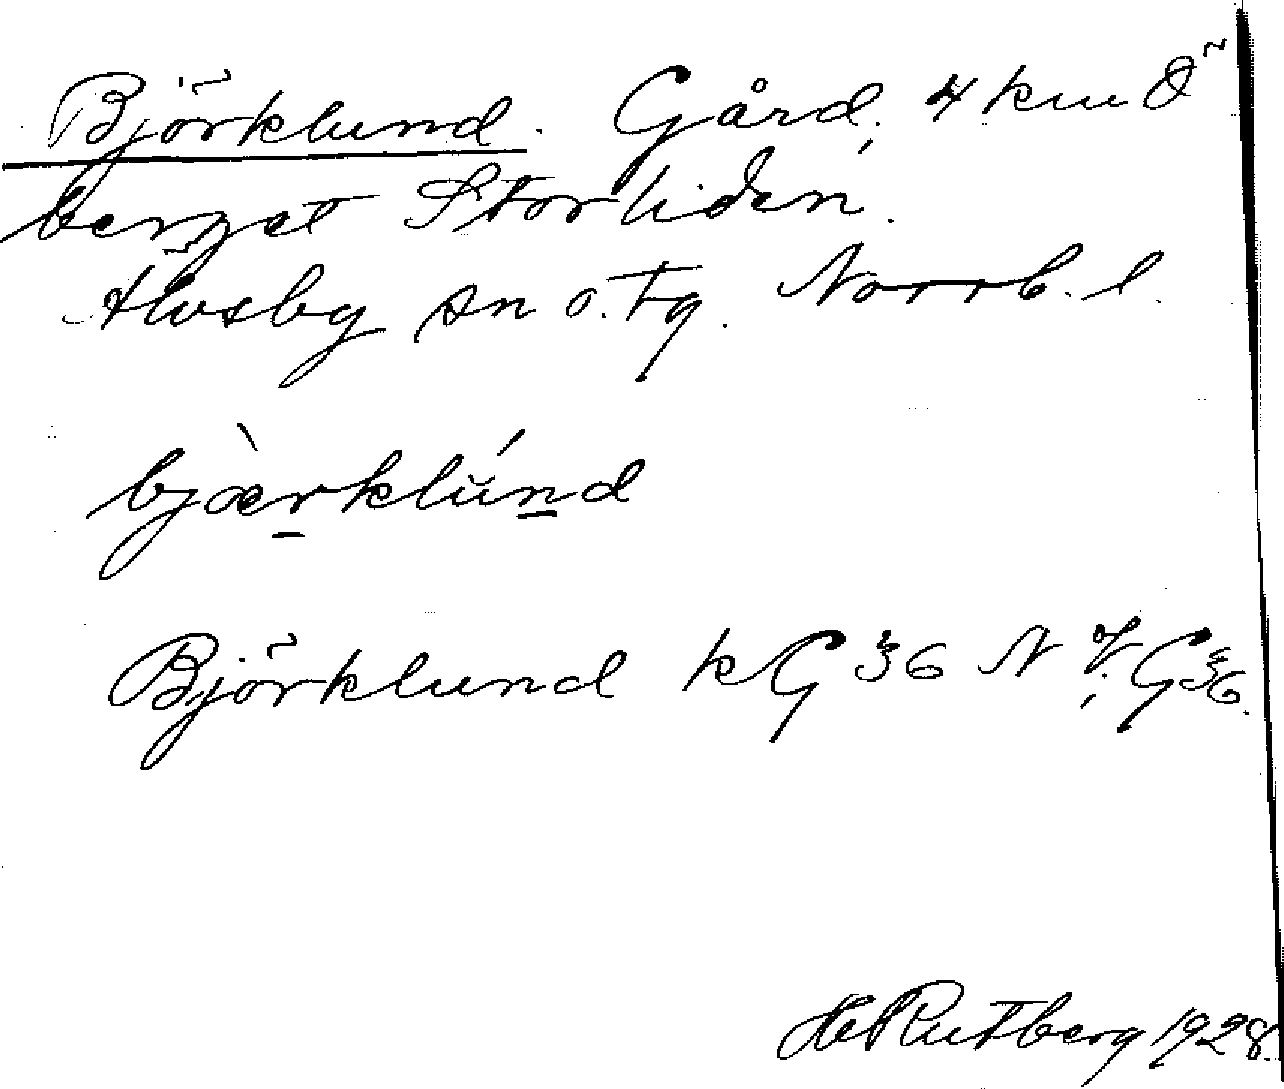 Björklund. Gård, 4 km Ö
berget Storliden.
Älvsby sn o. tg. Norrb. l.
bjæ̀rklún̲d
Björklund kG 36 N
He Rutberg 1928.